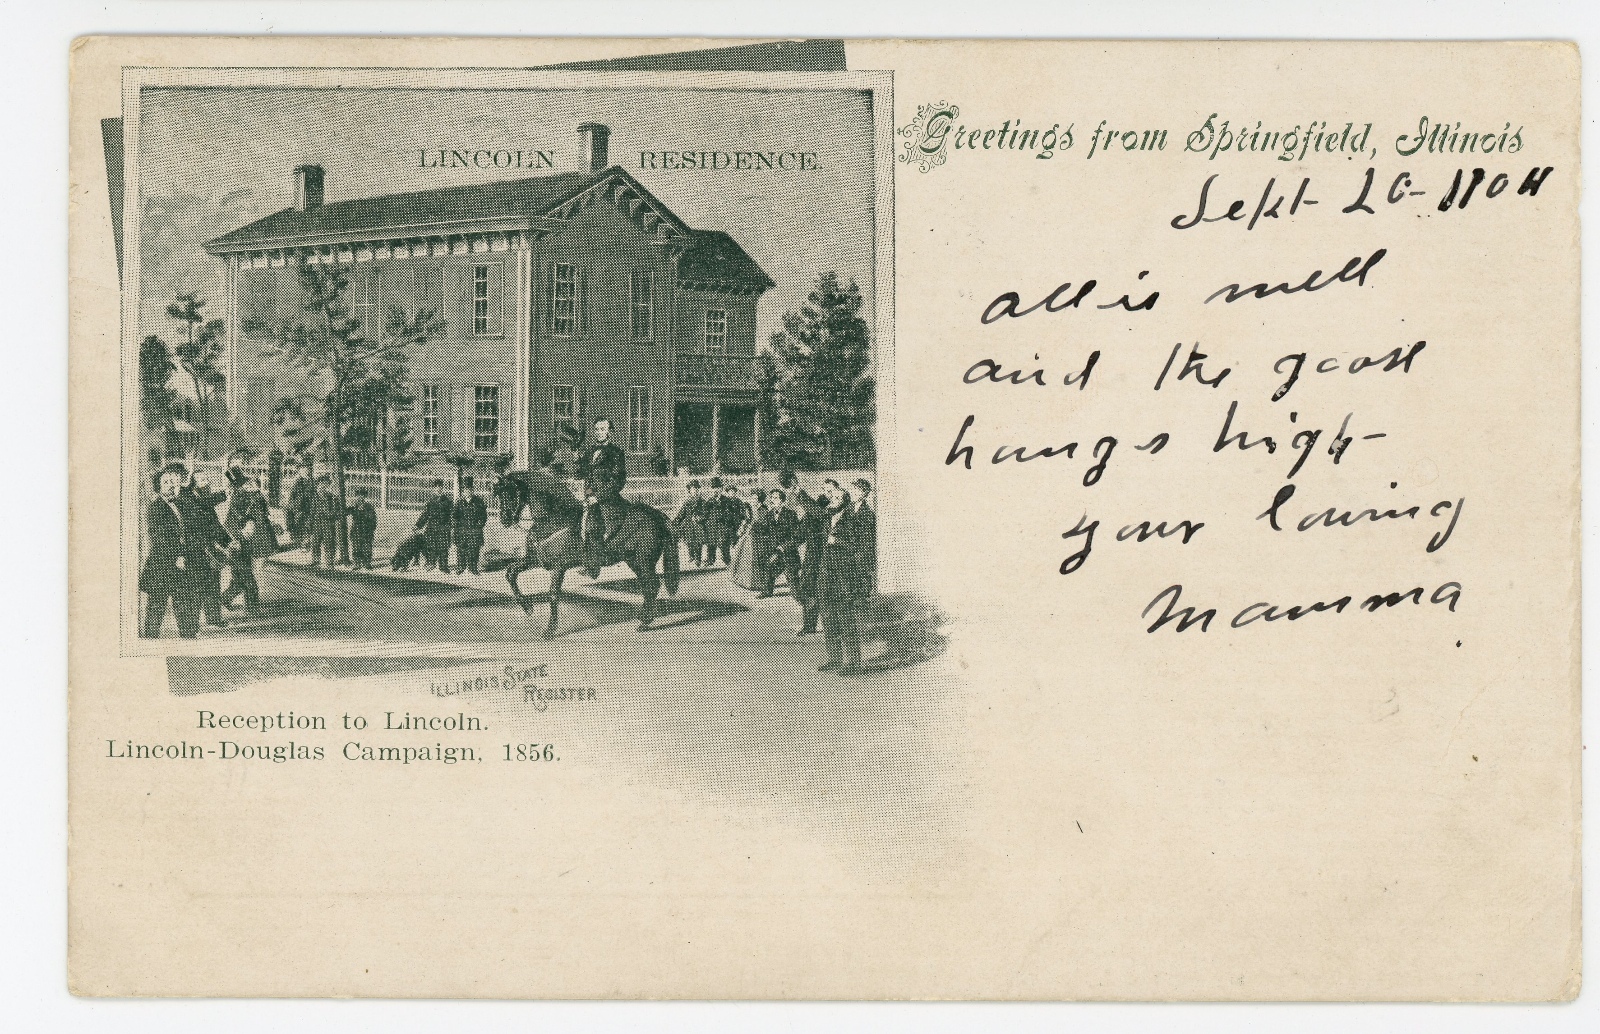 LINCOLN RESIDENCE.
Greetings from Springfield, Illinois
Sept 20-1904
all is well
and the goose
hangs high-
your loving
Mamma
ILLINOIS STATE
REGISTER
Reception to Lincoln.
Lincoln-Douglas Campaign, 1856.